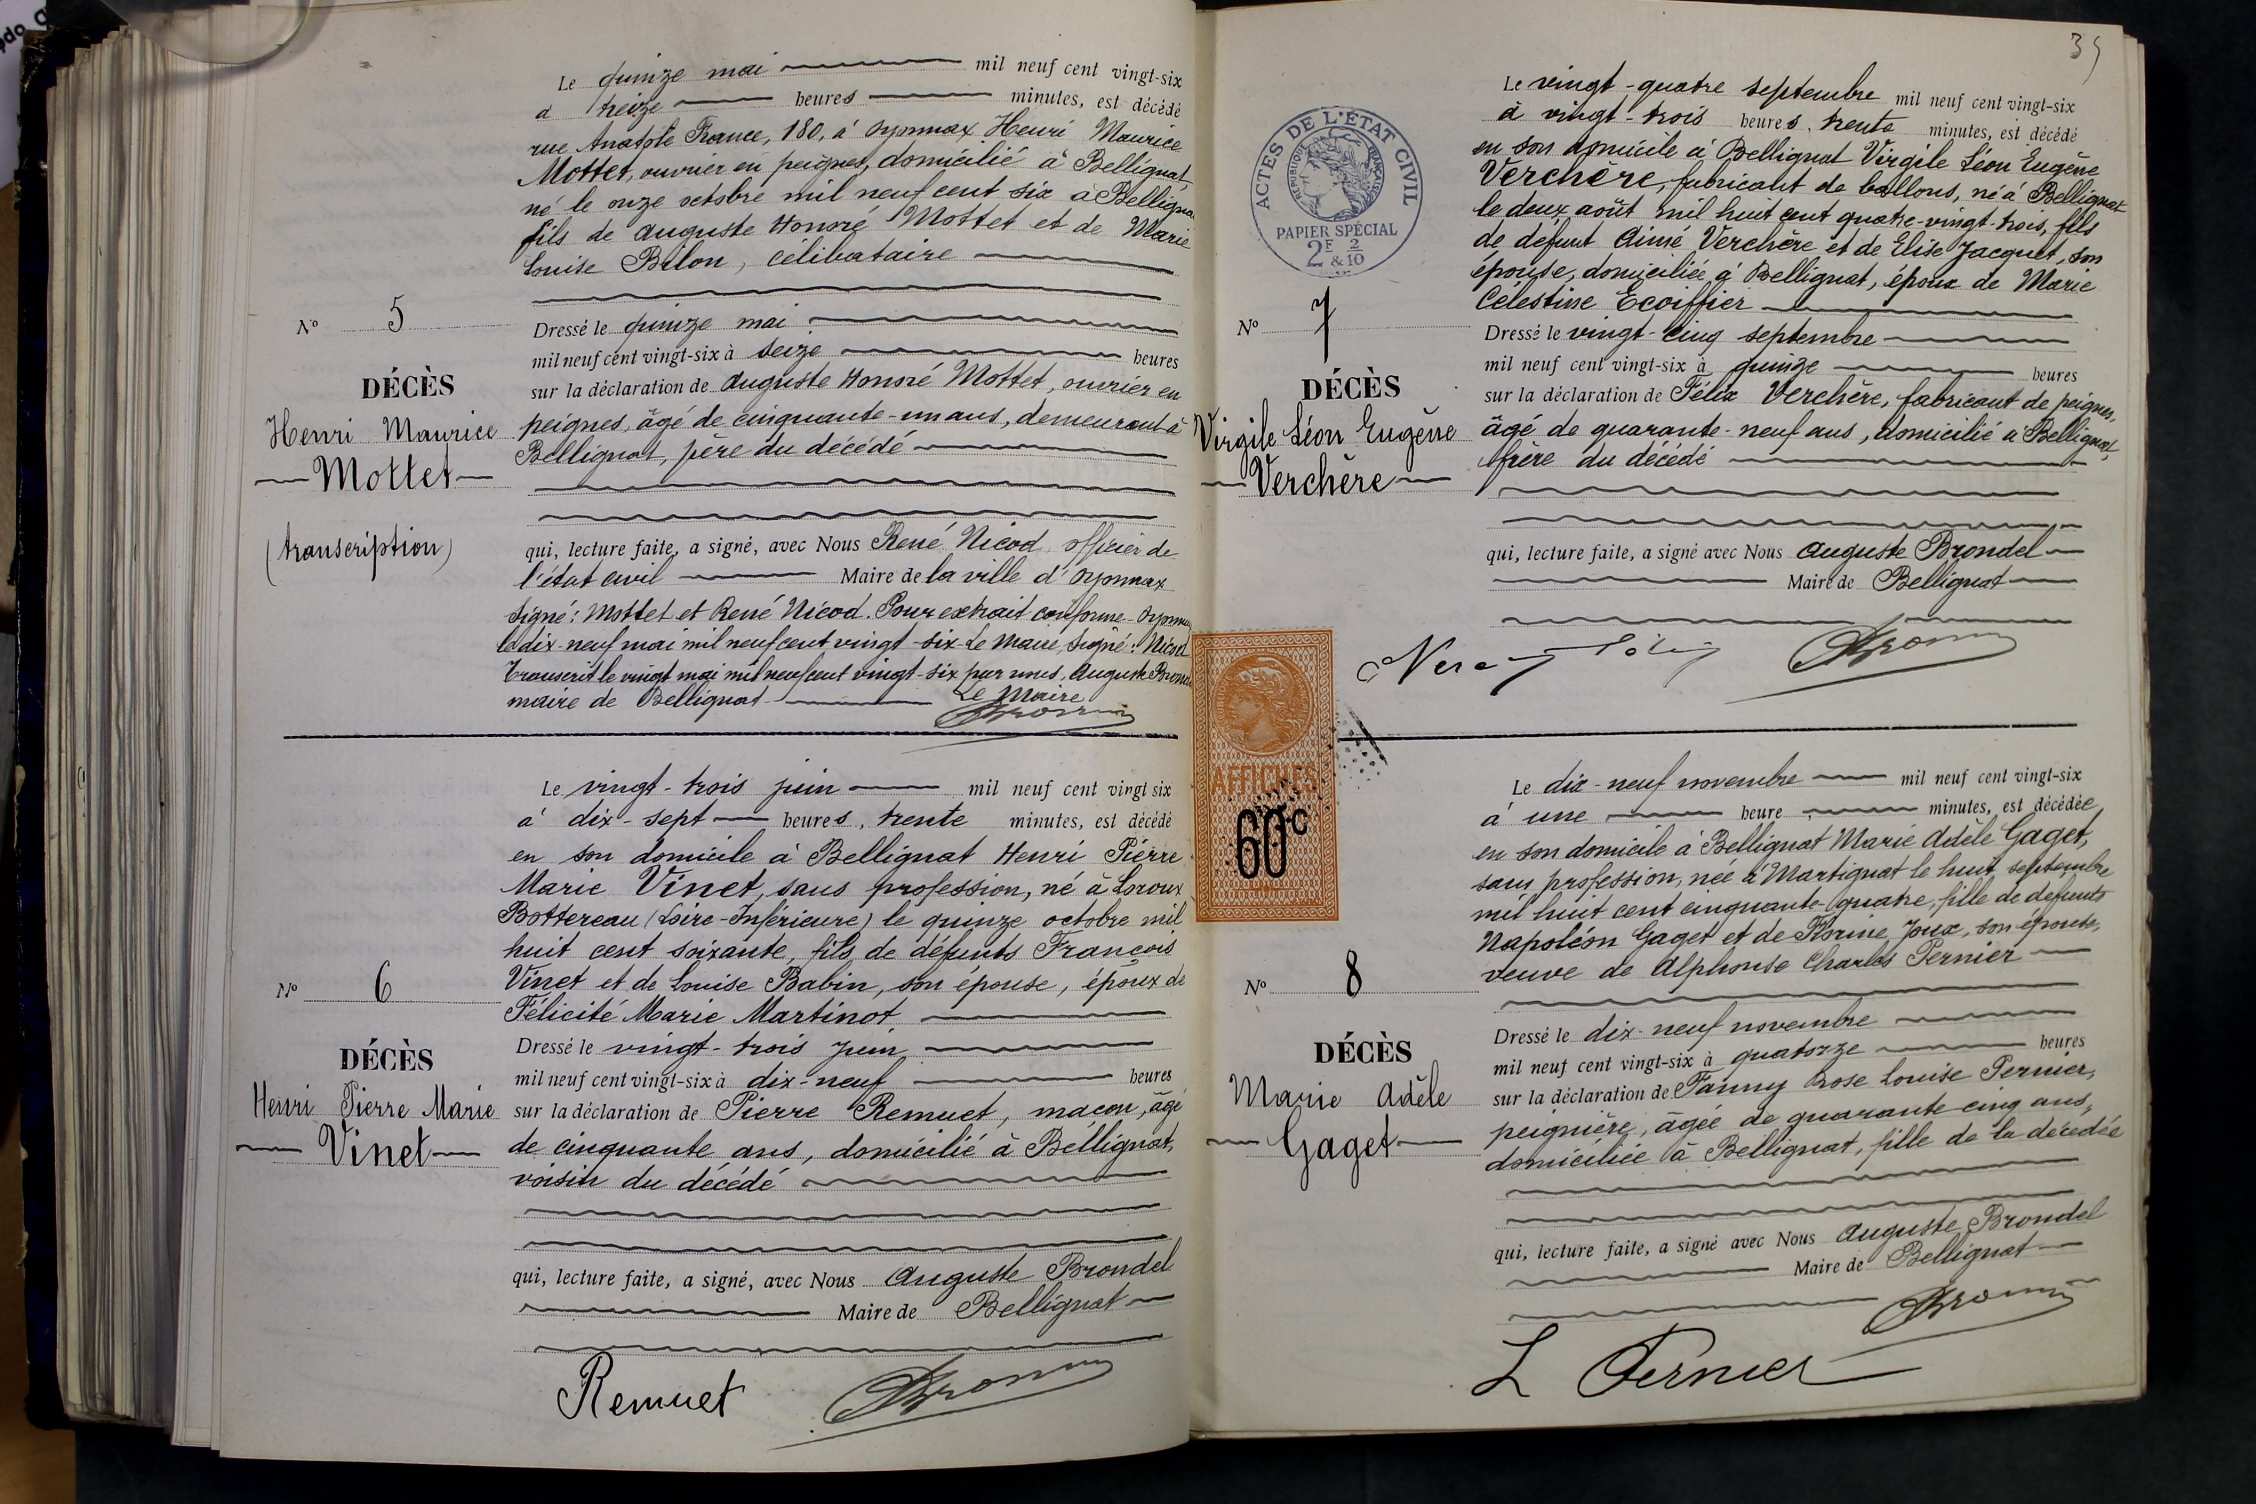 Le quinze mai mil neuf cent vingt-six
à treize heures minutes, est décédé
rue Anatole France, 180, à Oyonnax Henri Maurice
Mottet, ouvrier en peignes, domicilié à Bellignat
né le onze octobre mil neuf cent six à Bellignat
fils de Auguste Honoré Mottet et de Marie
Louise Bilon, célibataire
N° 5
DÉCÈS
Henri Maurice
Mottet
(transcription)
Dressé le quinze mai
mil neuf cent vingt-six à seize heures
sur la déclaration de Auguste Honoré Mottet, ouvrier en
peignes, âgé de cinquante-un ans, demeurant à
Bellignat, père du décédé
qui, lecture faite, a signé, avec Nous René Nicod officier de
l'état civil Maire de la ville d'Oyonnax
Signé: Mottet et René Nicod. Pour extrait conforme - Oyonnax
le dix-neuf mai mil neuf cent vingt-six - Le Maire, Signé: Nicod
Transcrit le vingt mai mil neuf cent vingt-six par nous, Auguste Brondel
maire de Bellignat
Le Maire
Le vingt-trois juin mil neuf cent vingt six
à dix-sept heures, trente minutes, est décédé
en son domicile à Bellignat Henri Pierre
Marie Vinet, sans profession, né à Loroux
Bottereau (Loire-Inférieure) le quinze octobre mil
huit cent soixante, fils de défunts François
Vinet et de Louise Babin, son épouse, époux de
Félicité Marie Martinot
N° 6
DÉCÈS
Henri Pierre Marie
Vinet
Dressé le vingt-trois juin
mil neuf cent vingt-six à dix-neuf heures
sur la déclaration de Pierre Remuet, maçon, âgé
de cinquante ans, domicilié à Bellignat,
voisin du décédé
qui, lecture faite, a signé, avec Nous Auguste Brondel
Maire de Bellignat
Remuet
39
ACTES DE L'ÉTAT CIVIL
RÉPUBLIQUE FRANÇAISE
PAPIER SPÉCIAL
2F & 2/10
Le vingt-quatre septembre mil neuf cent vingt-six
à vingt-trois heures, trente minutes, est décédé
en son domicile à Bellignat Virgile Léon Eugène
Verchère, fabricant de ballons, né à Bellignat
le deux août mil huit cent quatre-vingt-trois, fils
de défunt Aimé Verchère et de Elise Jacquet, son
épouse, domiciliée à Bellignat, époux de Marie
Célestine Ecoiffier
N° 7
DÉCÈS
Virgile Léon Eugène
Verchère
Dressé le vingt-cinq septembre
mil neuf cent vingt-six à quinze heures
sur la déclaration de Félix Verchère, fabricant de peignes,
âgé de quarante-neuf ans, domicilié à Bellignat,
frère du décédé
qui, lecture faite, a signé avec Nous Auguste Brondel
Maire de Bellignat
AFFICHES
60c
Le dix-neuf novembre mil neuf cent vingt-six
à une heure minutes, est décédée
en son domicile à Bellignat Marie Adèle Gaget,
sans profession, née à Martignat le huit septembre
mil huit cent cinquante-quatre, fille de défunts
Napoléon Gaget et de Florine Joux, son épouse,
veuve de Alphonse Charles Pernier
N° 8
DÉCÈS
Marie Adèle
Gaget
Dressé le dix-neuf novembre
mil neuf cent vingt-six à quatorze heures
sur la déclaration de Fanny Rose Louise Pernier,
peignière, âgée de quarante-cinq ans,
domiciliée à Bellignat, fille de la décédée
qui, lecture faite, a signé avec Nous Auguste Brondel
Maire de Bellignat
L Pernier